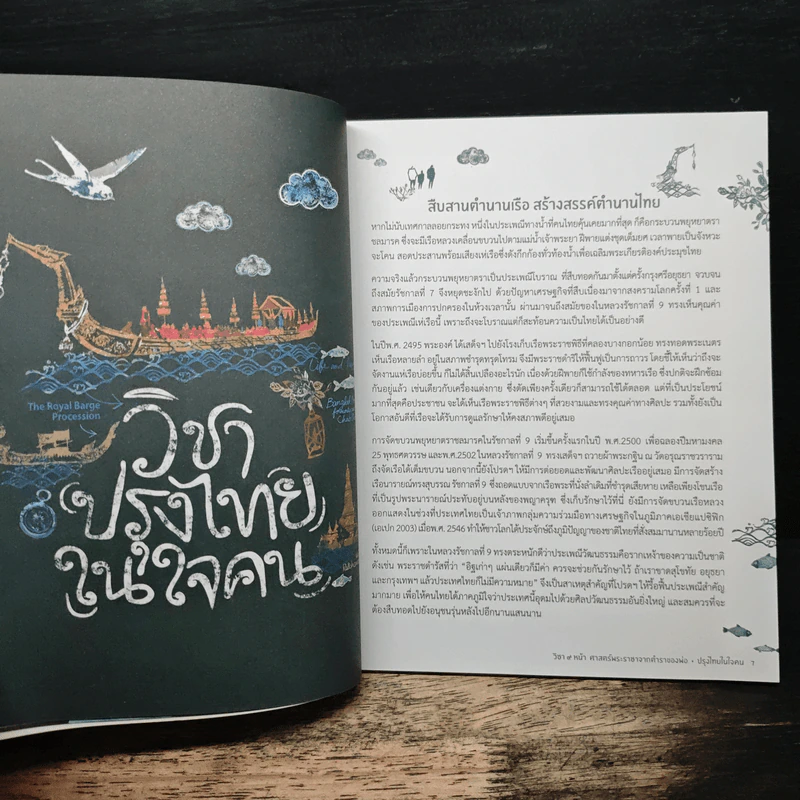 The Royal Barge
Procession
วิชา
ปรุงไทย
ในใจคน
สืบสานตำนานเรือ สร้างสรรค์ตำนานไทย
หากไม่นับเทศกาลลอยกระทง หนึ่งในประเพณีทางน้ำที่คนไทยคุ้นเคยมากที่สุด ก็คือกระบวนพยุหยาตรา
ชลมารค ซึ่งจะมีเรือหลวงเคลื่อนขบวนไปตามแม่น้ำเจ้าพระยา ฝีพายแต่งชุดเต็มยศ เวลาพายเป็นจังหวะ
จะโคน สอดประสานพร้อมเสียงเห่เรือซึ่งดังกึกก้องทั่วท้องน้ำเพื่อเฉลิมพระเกียรติองค์ประมุขไทย
ความจริงแล้วกระบวนพยุหยาตราเป็นประเพณีโบราณ ที่สืบทอดกันมาตั้งแต่ครั้งกรุงศรีอยุธยา จวบจน
ถึงสมัยรัชกาลที่ 7 จึงหยุดชะงักไป ด้วยปัญหาเศรษฐกิจที่สืบเนื่องมาจากสงครามโลกครั้งที่ 1 และ
สภาพการเมืองการปกครองในห้วงเวลานั้น ผ่านมาจนถึงสมัยของในหลวงรัชกาลที่ 9 ทรงเห็นคุณค่า
ของประเพณีเห่เรือนี้ เพราะถึงจะโบราณแต่ก็สะท้อนความเป็นไทยได้เป็นอย่างดี
ในปีพ.ศ. 2495 พระองค์ ได้เสด็จฯ ไปยังโรงเก็บเรือพระราชพิธีที่คลองบางกอกน้อย ทรงทอดพระเนตร
เห็นเรือหลายลำ อยู่ในสภาพชำรุดทรุดโทรม จึงมีพระราชดำริให้ฟื้นฟูเป็นการถาวร โดยชี้ให้เห็นว่าถึงจะ
จัดงานแห่เรือบ่อยขึ้น ก็ไม่ได้สิ้นเปลืองอะไรนัก เนื่องด้วยฝีพายก็ใช้กำลังของทหารเรือ ซึ่งปกติจะฝึกซ้อม
กันอยู่แล้ว เช่นเดียวกับเครื่องแต่งกาย ซึ่งตัดเพียงครั้งเดียวก็สามารถใช้ได้ตลอด แต่ที่เป็นประโยชน์
มากที่สุดคือประชาชน จะได้เห็นเรือพระราชพิธีต่างๆ ที่สวยงามและทรงคุณค่าทางศิลปะ รวมทั้งยังเป็น
โอกาสอันดีที่เรือจะได้รับการดูแลรักษาให้คงสภาพดีอยู่เสมอ
การจัดขบวนพยุหยาตราชลมารคในรัชกาลที่ 9 เริ่มขึ้นครั้งแรกในปี พ.ศ.2500 เพื่อฉลองปีมหามงคล
25 พุทธศตวรรษ และพ.ศ.2502 ในหลวงรัชกาลที่ 9 ทรงเสด็จฯ ถวายผ้าพระกฐิน ณ วัดอรุณราชวราราม
ถึงจัดเรือได้เต็มขบวน นอกจากนี้ยังโปรดฯ ให้มีการต่อยอดและพัฒนาศิลปะเรืออยู่เสมอ มีการจัดสร้าง
เรือนารายณ์ทรงสุบรรณ รัชกาลที่ 9 ซึ่งถอดแบบจากเรือพระที่นั่งลำเดิมที่ชำรุดเสียหาย เหลือเพียงโขนเรือ
ที่เป็นรูปพระนารายณ์ประทับอยู่บนหลังของพญาครุฑ ซึ่งเก็บรักษาไว้ที่นี่ ยังมีการจัดขบวนเรือหลวง
ออกแสดงในช่วงที่ประเทศไทยเป็นเจ้าภาพกลุ่มความร่วมมือทางเศรษฐกิจในภูมิภาคเอเชียแปซิฟิก
(เอเปก 2003) เมื่อพ.ศ. 2546 ทำให้ชาวโลกได้ประจักษ์ถึงภูมิปัญญาของชาติไทยที่สั่งสมมานานหลายร้อยปี
ทั้งหมดนี้ก็เพราะในหลวงรัชกาลที่ 9 ทรงตระหนักดีว่าประเพณีวัฒนธรรมคือรากเหง้าของความเป็นชาติ
ดังเช่น พระราชดำรัสที่ว่า “อิฐเก่าๆ แผ่นเดียวก็มีค่า ควรจะช่วยกันรักษาไว้ ถ้าเราขาดสุโขทัย อยุธยา
และกรุงเทพฯ แล้วประเทศไทยก็ไม่มีความหมาย” จึงเป็นสาเหตุสำคัญที่โปรดฯ ให้รื้อฟื้นประเพณีสำคัญ
มากมาย เพื่อให้คนไทยได้ภาคภูมิใจว่าประเทศนี้อุดมไปด้วยศิลปวัฒนธรรมอันยิ่งใหญ่ และสมควรที่จะ
ต้องสืบทอดไปยังอนุชนรุ่นหลังไปอีกนานแสนนาน
วิชา ๙ หน้า ศาสตร์พระราชาจากตำราของพ่อ • ปรุงไทยในใจคน 7